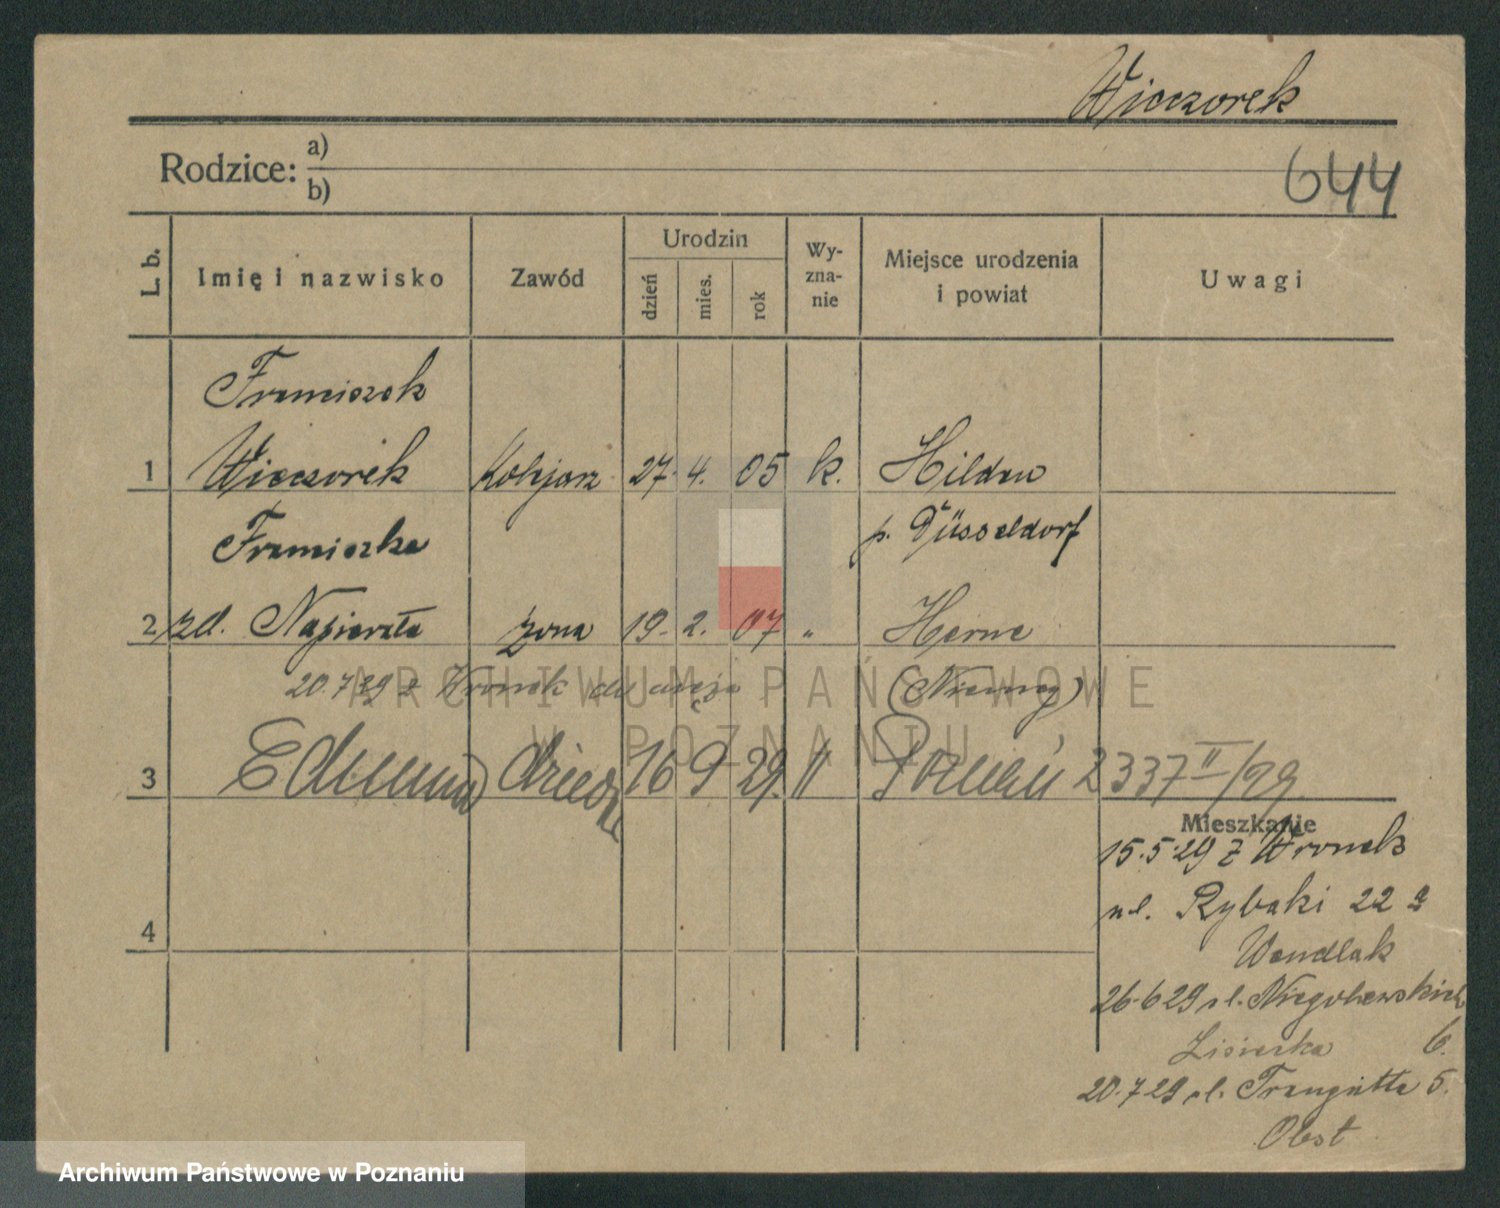 Wieczorek
Rodzice: a)
b)
644
L. b.
Imię i nazwisko
Zawód
Urodzin
dzień
mies.
rok
Wy-
zna-
nie
Miejsce urodzenia
i powiat
Uwagi
Franciszek
1 Wieczorek Kolejarz 27. 4. 05 k. Hilden
Franciszka p. Düsseldorf
2 zd. Napierała żona 19. 2. 07 " Herne
20.7.29 z Wronek do męża (Niemcy)
3 Edmund dziecko 16 9 29. " Poznań 2337 II/29
Mieszkanie
15.5.29 z Wronek
ul. Rybaki 22 a
Wendlak
4
26.6 29 ul. Niegolewskich
Lisiecka 6.
20.7 29 ul. Traugutta 5.
Obst
ARCHIWUM PAŃSTWOWE
W POZNANIU
Archiwum Państwowe w Poznaniu